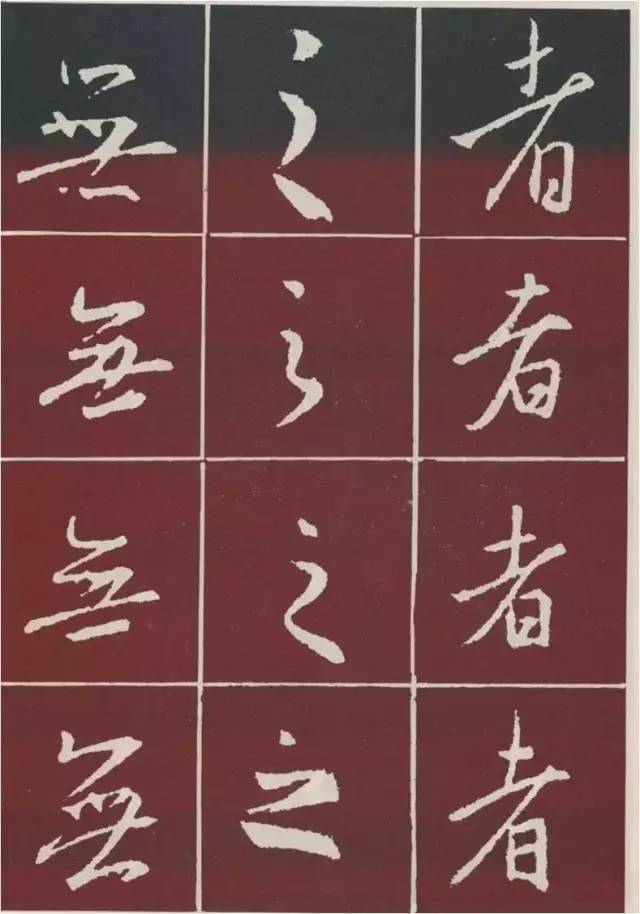 者者者者
之之之之
無無無無